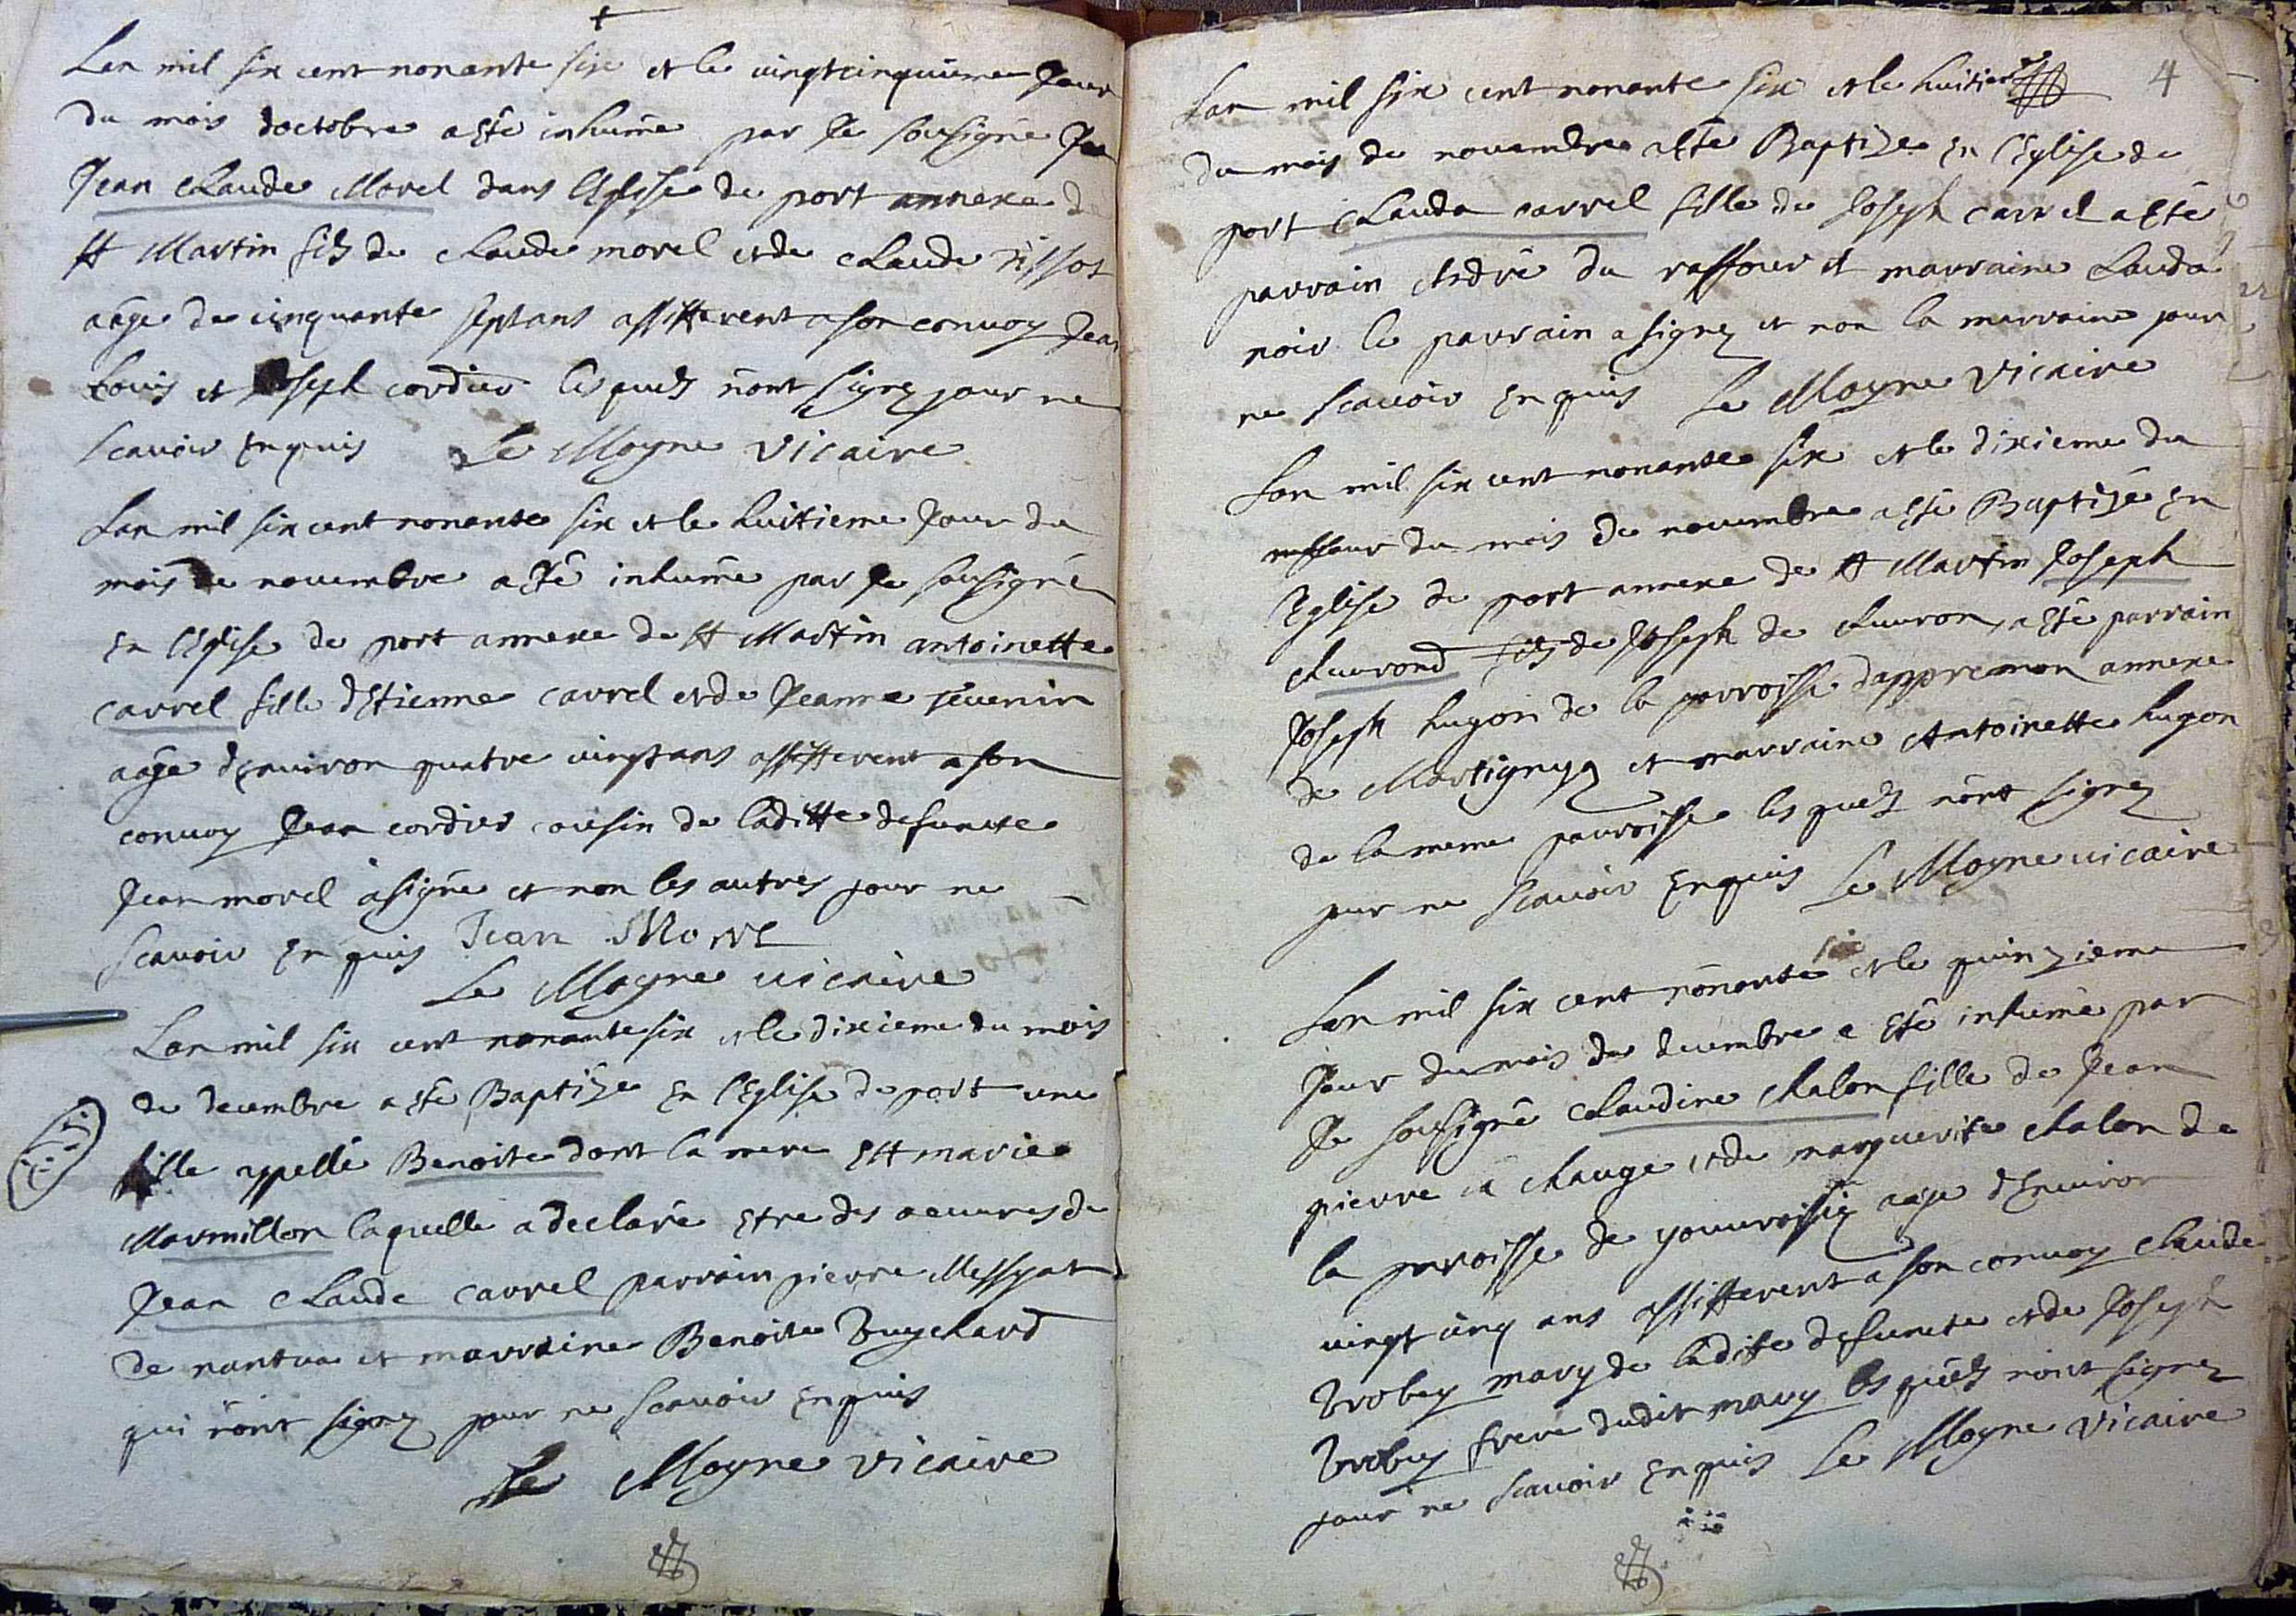 Lan mil six cent nonante six et le vingtcinquieme Jour
du mois doctobre a esté inhumé par Je sousigné
Jean Claude Morel dans l'Eglise de port annexe de
st Martin fils de claude morel et de claude tissot
aage de cinquante septans assisterent a son convoy Jean
Louis et Joseph cordier lesquels n'ont signez pour ne
scavoir Enquis Le Moyne vicaire
Lan mil six cent nonante six et le huitieme Jour du
mois de novembre a esté inhumé par Je sousigné
En l'Eglise de port annexe de st Martin antoinette
carrel fille d'Etienne carrel et de Jeanne
aagé d'Environ quatre vingt ans assisterent a son
convoy Jean cordier cousin de laditte defuncte
Jean morel a signé et non les autres pour ne
scavoir Enquis Jean Morel
Le Moyne vicaire
Lan mil six cent nonante six et le dixieme du mois
de decembre a esté Baptize En l'Eglise de port une
fille appellé Benoite dont la mere Est marie
Marmillon laquelle a declaré Etre des oeuvres de
Jean Claude Carrel parrain pierre Messyat
de nantua et marraine Benoite Buychard
qui n'ont signez pour ne scavoir Enquis
Le Moyne vicaire
4
Lan mil six cent nonante six et le huitieme
du mois de novembre a esté Baptize En l'Eglise de
port Clauda carrel fille de Joseph carrel a esté
parrain André du raffour et marraine Clauda
noir le parrain a signez et non la marraine pour
ne scavoir Enquis Le Moyne vicaire
Lan mil six cent nonante six et le dixieme du
du mois de novembre a esté Baptizé En
l'Eglise de port annexe de st Martin Joseph
chavrond fils de Joseph de chavron, a esté parrain
Joseph hugon de la parroisse d'appremon annexe
de Martignya et marraine Antoinette hugon
de la meme parroisse lesquels n'ont signez
pour ne scavoir Enquis Le Moyne vicaire
six
Lan mil six cent nonante et le quinzieme
Jour du mois de decembre a Esté inhumé par
Je sousigné Claudine chalon fille de Jean
pierre a chauge et de marguerite chalon de
la parroisse de aagé d'Environ
vingt cinq ans assisterent a son convoy claude
Brobey mary de ladite defuncte et de Joseph
Brobey frere dudit mary lesquels n'ont signez
pour ne scavoir Enquis Le Moyne vicaire